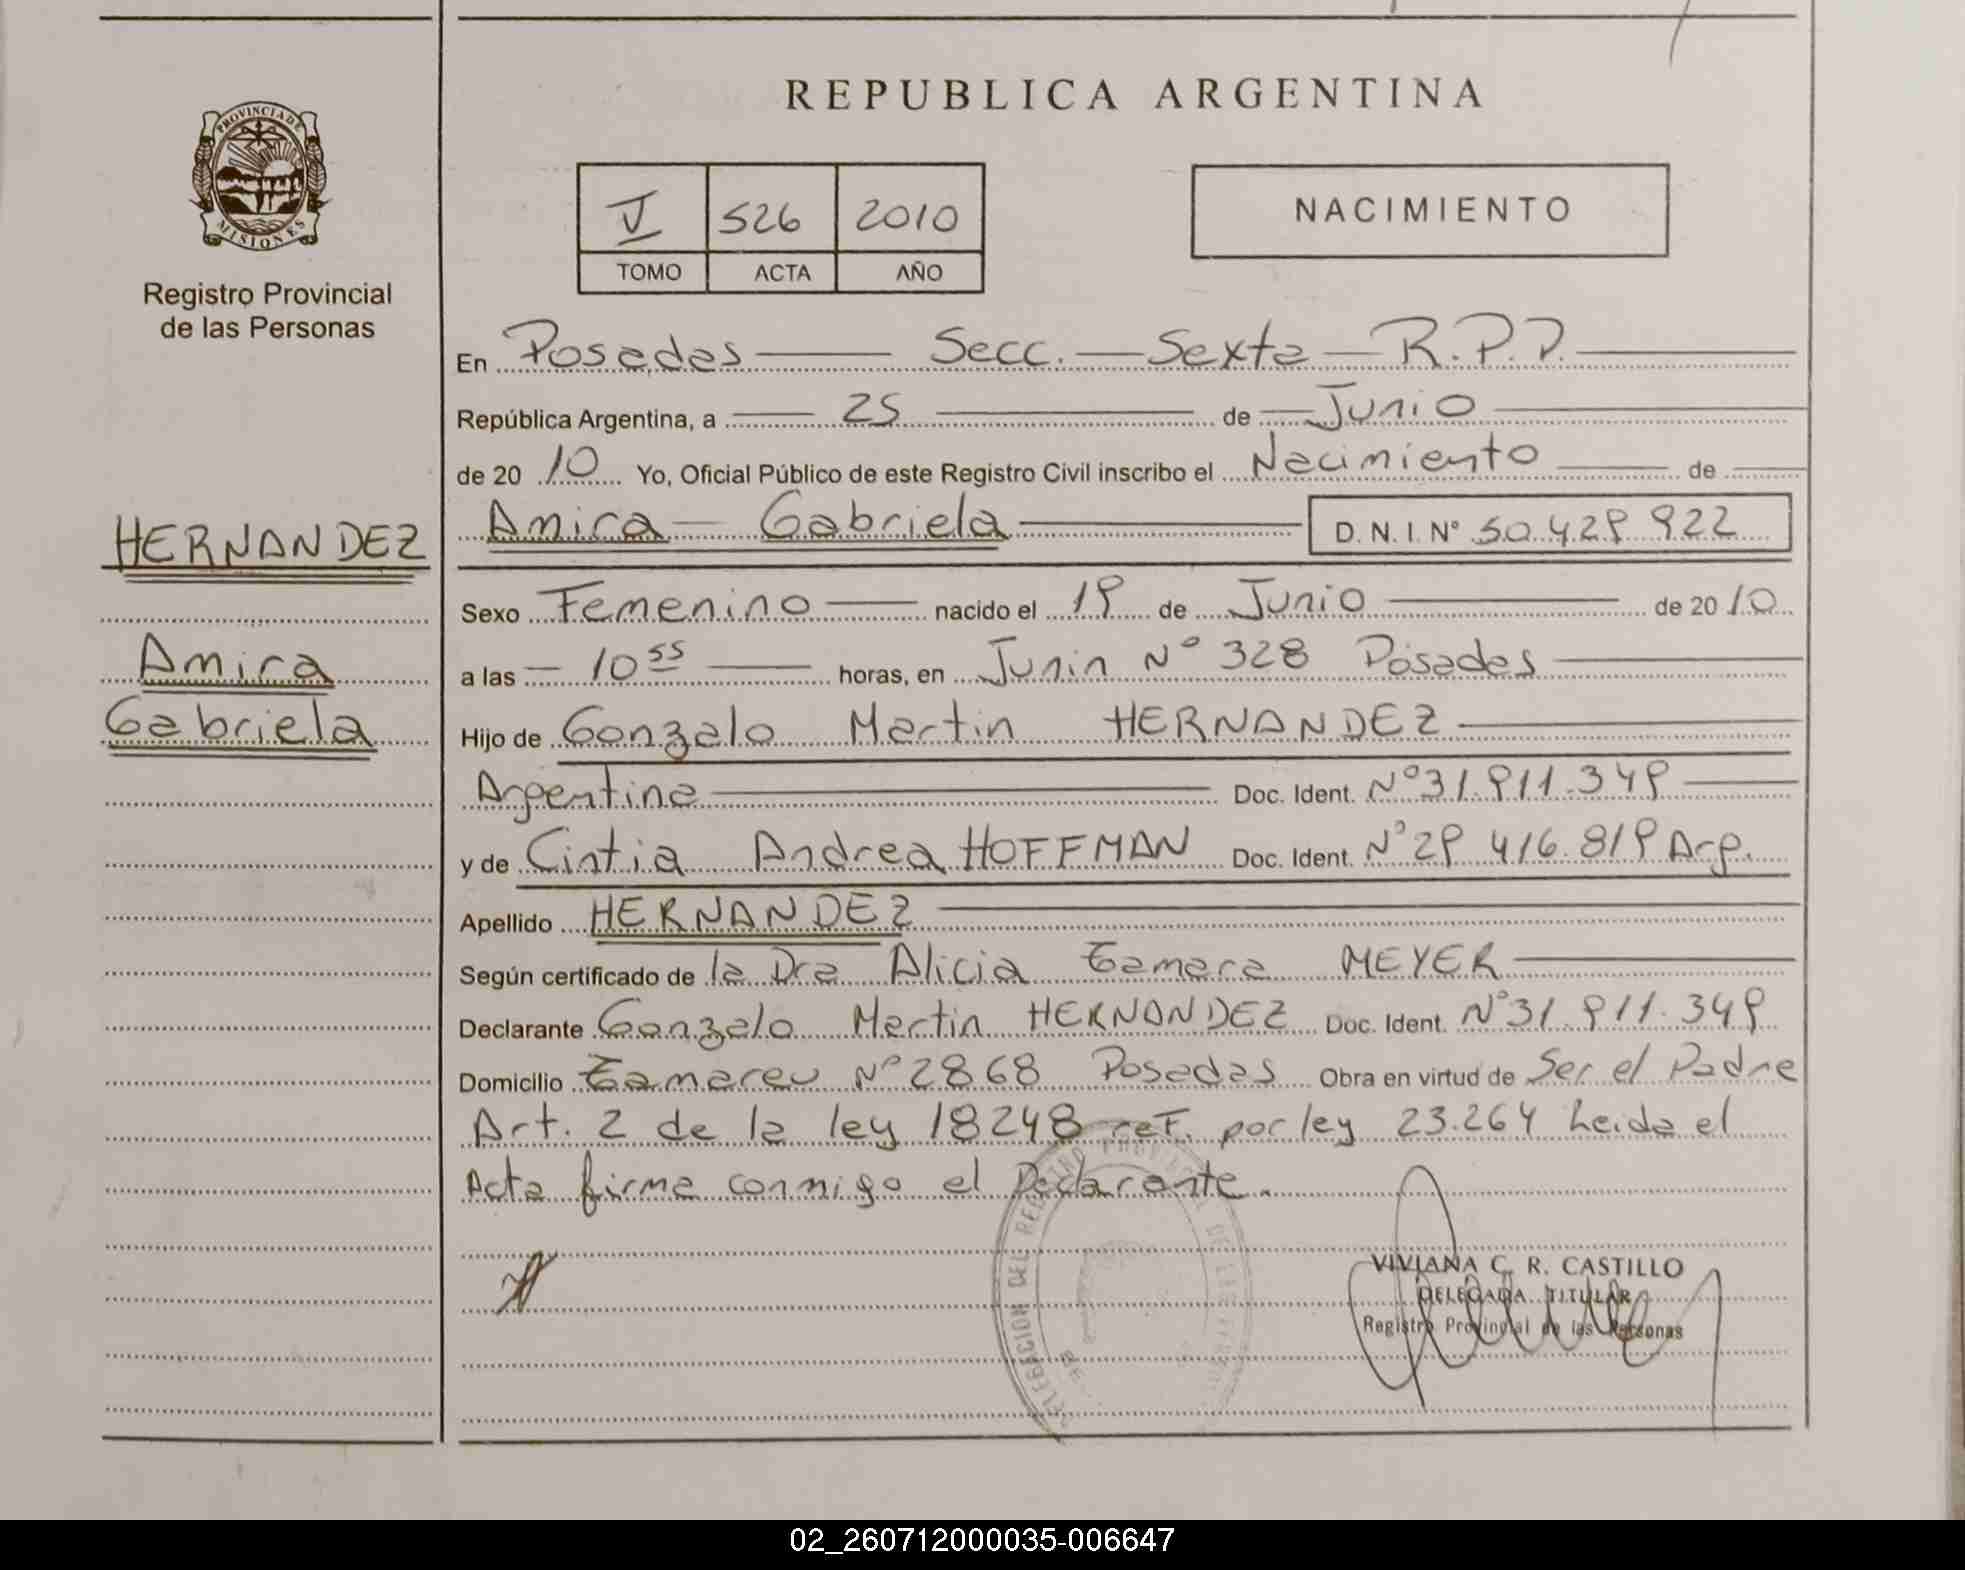 REPUBLICA ARGENTINA
PROVINCIA DE
MISIONES
Registro Provincial
de las Personas
V 526 2010
TOMO ACTA AÑO
NACIMIENTO
En Posadas Secc. Sexta R.P.P.
República Argentina, a 25 de Junio
de 2010 Yo, Oficial Público de este Registro Civil inscribo el Nacimiento de
HERNANDEZ
Amira Gabriela D.N.I. Nº 50.429 922
Sexo Femenino nacido el 19 de Junio de 2010
Amira
a las 10 55 horas, en Junin Nº 328 Posadas
Gabriela
Hijo de Gonzalo Martin HERNANDEZ
Argentina Doc. Ident. Nº 31.911.349
y de Cintia Andrea HOFFMAN Doc. Ident. Nº 29 416.819 Arg.
Apellido HERNANDEZ
Según certificado de la Dra Alicia Tamara MEYER
Declarante Gonzalo Martin HERNANDEZ Doc. Ident. Nº 31.911.349
Domicilio Tamareu Nº 2868 Posadas Obra en virtud de Ser el Padre
Art. 2 de la ley 18248 ref. por ley 23.264 Leida el
Acta firma conmigo el Declarante.
DELEGACION DEL REGISTRO PROVINCIAL DE LAS PERSONAS
VIVIANA C. R. CASTILLO
DELEGADA TITULAR
Registro Provincial de las Personas
02_260712000035-006647